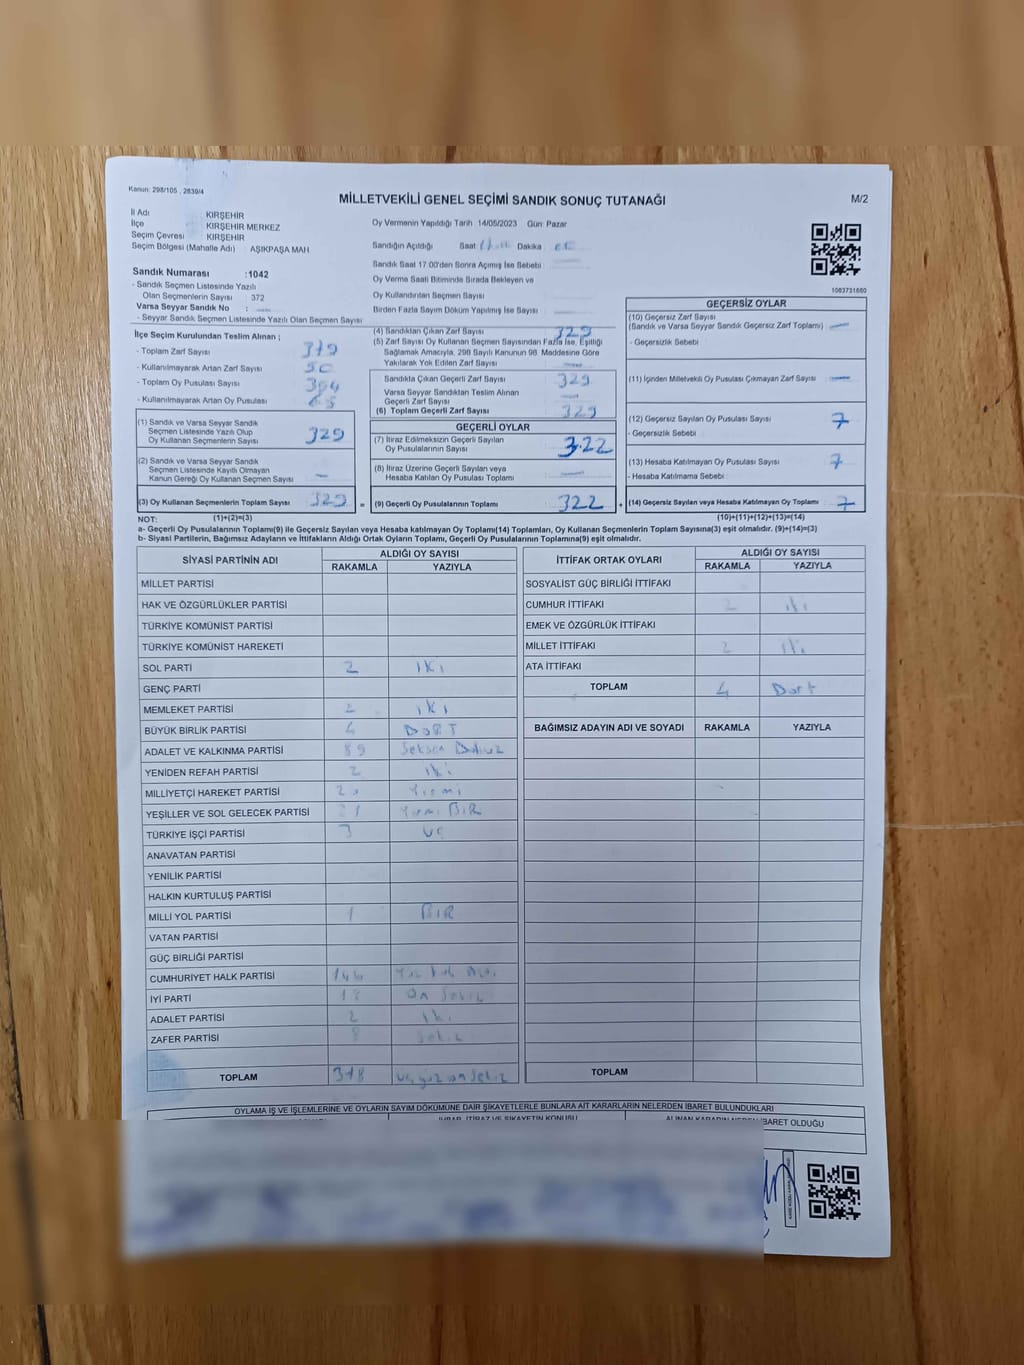 Kanun: 298/105 , 2839/4
MİLLETVEKİLİ GENEL SEÇİMİ SANDIK SONUÇ TUTANAĞI
M/2
İl Adı KIRŞEHİR
İlçe KIRŞEHİR MERKEZ
Seçim Çevresi KIRŞEHİR
Seçim Bölgesi (Mahalle Adı) : AŞIKPAŞA MAH.
Sandık Numarası :1042
- Sandık Seçmen Listesinde Yazılı
Olan Seçmenlerin Sayısı 372
Varsa Seyyar Sandık No :
- Seyyar Sandık Seçmen Listesinde Yazılı Olan Seçmen Sayısı
Oy Vermenin Yapıldığı Tarih 14/05/2023 Gün: Pazar
Sandığın Açıldığı Saat Dakika :
Sandık Saat 17.00'den Sonra Açılmış İse Sebebi :
Oy Verme Saati Bitiminde Sırada Bekleyen ve
Oy Kullandırılan Seçmen Sayısı
Birden Fazla Sayım Döküm Yapılmış İse Sayısı :
1063731660
İlçe Seçim Kurulundan Teslim Alınan ;
- Toplam Zarf Sayısı : 379
- Kullanılmayarak Artan Zarf Sayısı : 50
- Toplam Oy Pusulası Sayısı : 394
- Kullanılmayarak Artan Oy Pusulası : 65
(1) Sandık ve Varsa Seyyar Sandık
Seçmen Listesinde Yazılı Olup
Oy Kullanan Seçmenlerin Sayısı 329
(2) Sandık ve Varsa Seyyar Sandık
Seçmen Listesinde Kayıtlı Olmayan
Kanun Gereği Oy Kullanan Seçmen Sayısı —
(3) Oy Kullanan Seçmenlerin Toplam Sayısı 329 =
(4) Sandıktan Çıkan Zarf Sayısı 329
(5) Zarf Sayısı Oy Kullanan Seçmen Sayısından Fazla İse, Eşitliği
Sağlamak Amacıyla, 298 Sayılı Kanunun 98. Maddesine Göre
Yakılarak Yok Edilen Zarf Sayısı —
Sandıkta Çıkan Geçerli Zarf Sayısı 329
Varsa Seyyar Sandıktan Teslim Alınan
Geçerli Zarf Sayısı —
(6) Toplam Geçerli Zarf Sayısı 329
GEÇERLİ OYLAR
(7) İtiraz Edilmeksizin Geçerli Sayılan
Oy Pusulalarının Sayısı 322
(8) İtiraz Üzerine Geçerli Sayılan veya
Hesaba Katılan Oy Pusulası Toplamı —
(9) Geçerli Oy Pusulalarının Toplamı 322 +
GEÇERSİZ OYLAR
(10) Geçersiz Zarf Sayısı
(Sandık ve Varsa Seyyar Sandık Geçersiz Zarf Toplamı) —
- Geçersizlik Sebebi
(11) İçinden Milletvekili Oy Pusulası Çıkmayan Zarf Sayısı —
(12) Geçersiz Sayılan Oy Pusulası Sayısı 7
- Geçersizlik Sebebi
(13) Hesaba Katılmayan Oy Pusulası Sayısı 7
- Hesaba Katılmama Sebebi
(14) Geçersiz Sayılan veya Hesaba Katılmayan Oy Toplamı 7
NOT: (1)+(2)=(3) (10)+(11)+(12)+(13)=(14)
a- Geçerli Oy Pusulalarının Toplamı(9) ile Geçersiz Sayılan veya Hesaba katılmayan Oy Toplamı(14) Toplamları, Oy Kullanan Seçmenlerin Toplam Sayısına(3) eşit olmalıdır. (9)+(14)=(3)
b- Siyasi Partilerin, Bağımsız Adayların ve İttifakların Aldığı Ortak Oyların Toplamı, Geçerli Oy Pusulalarının Toplamına(9) eşit olmalıdır.
SİYASİ PARTİNİN ADI ALDIĞI OY SAYISI
RAKAMLA YAZIYLA
MİLLET PARTİSİ
HAK VE ÖZGÜRLÜKLER PARTİSİ
TÜRKİYE KOMÜNİST PARTİSİ
TÜRKİYE KOMÜNİST HAREKETİ
SOL PARTİ 2 iki
GENÇ PARTİ
MEMLEKET PARTİSİ 2 iki
BÜYÜK BİRLİK PARTİSİ 4 DÖRT
ADALET VE KALKINMA PARTİSİ 89 Seksen Dokuz
YENİDEN REFAH PARTİSİ 2 iki
MİLLİYETÇİ HAREKET PARTİSİ 20 Yirmi
YEŞİLLER VE SOL GELECEK PARTİSİ 21 Yirmi BİR
TÜRKİYE İŞÇİ PARTİSİ 3 üç
ANAVATAN PARTİSİ
YENİLİK PARTİSİ
HALKIN KURTULUŞ PARTİSİ
MİLLİ YOL PARTİSİ 1 BİR
VATAN PARTİSİ
GÜÇ BİRLİĞİ PARTİSİ
CUMHURİYET HALK PARTİSİ 146
İYİ PARTİ 18 On Sekiz
ADALET PARTİSİ 2 iki
ZAFER PARTİSİ 8 Sekiz
TOPLAM 318 üçyüz on sekiz
İTTİFAK ORTAK OYLARI ALDIĞI OY SAYISI
RAKAMLA YAZIYLA
SOSYALİST GÜÇ BİRLİĞİ İTTİFAKI
CUMHUR İTTİFAKI 2 iki
EMEK VE ÖZGÜRLÜK İTTİFAKI
MİLLET İTTİFAKI 2 iki
ATA İTTİFAKI
TOPLAM 4 Dört
BAĞIMSIZ ADAYIN ADI VE SOYADI RAKAMLA YAZIYLA
TOPLAM
OYLAMA İŞ VE İŞLEMLERİNE VE OYLARIN SAYIM DÖKÜMÜNE DAİR ŞİKAYETLERLE BUNLARA AİT KARARLARIN NELERDEN İBARET BULUNDUKLARI
İHBAR, İTİRAZ VE ŞİKAYETİN KONUSU ALINAN KARARIN NEDEN İBARET OLDUĞU